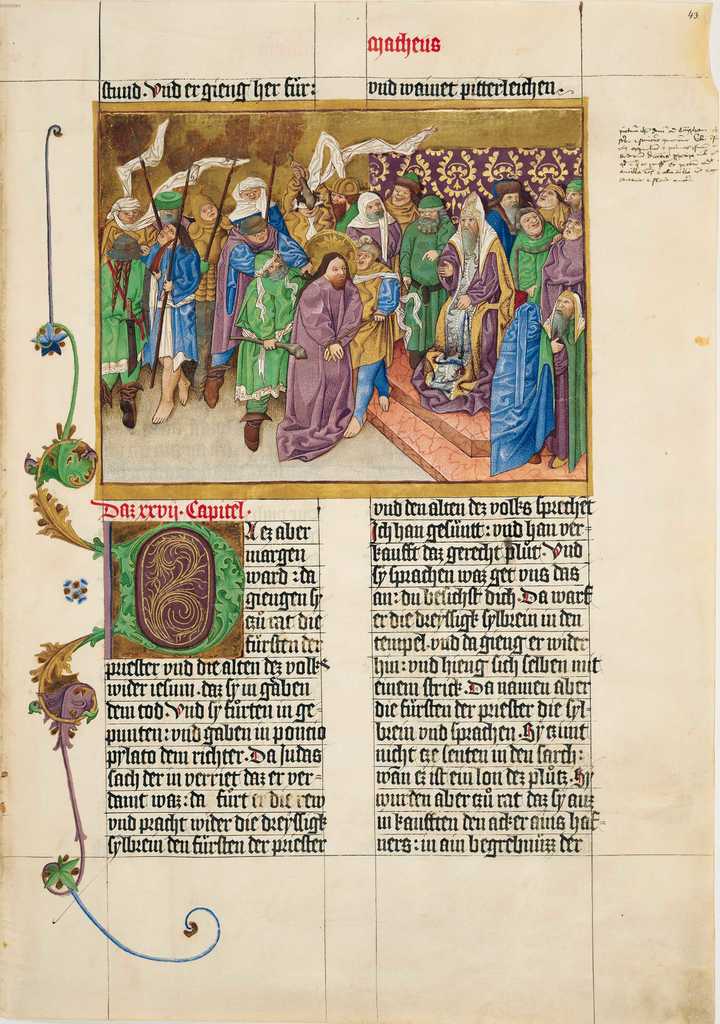 43
Matheus
stund. Vnd er gieng her für:
vnd wainet pitterleichen.
Daz xxvij. Capitel.
D A ez aber
margen
ward: da
giengen sy
zů rat die
fürsten der
priester vnd die alten dez volks
wider iesum. daz sy in gäben
dem tod. Vnd sy fürten in ge-
punten: vnd gaben in poncio
pylato dem richter. Da Judas
sach der in verriet daz er ver-
damt waz: da fürt die rew
vnd pracht wider die dreyssigk
sylbrein den fürsten der priester
vnd den alten dez volks sprechent
Jch han gesüntt: vnd han ver-
kaufft daz gerecht plůt. Vnd
sy sprachen waz get vns das
an: du besichst dich. Da warf
er die dreyssigk sylbrein in den
tempel. vnd da gieng er wider
hin: vnd hieng sich selben mit
einem strick. Da namen aber
die fürsten der priester die syl-
brein vnd sprachen. Sy zimt
nicht ze senten in den sarch:
wan ez ist ein lon dez plůtz. Sy
wurden aber zů rat daz sy auz
in kaufften den acker ains haf-
ners: in ain begrebnüzz der